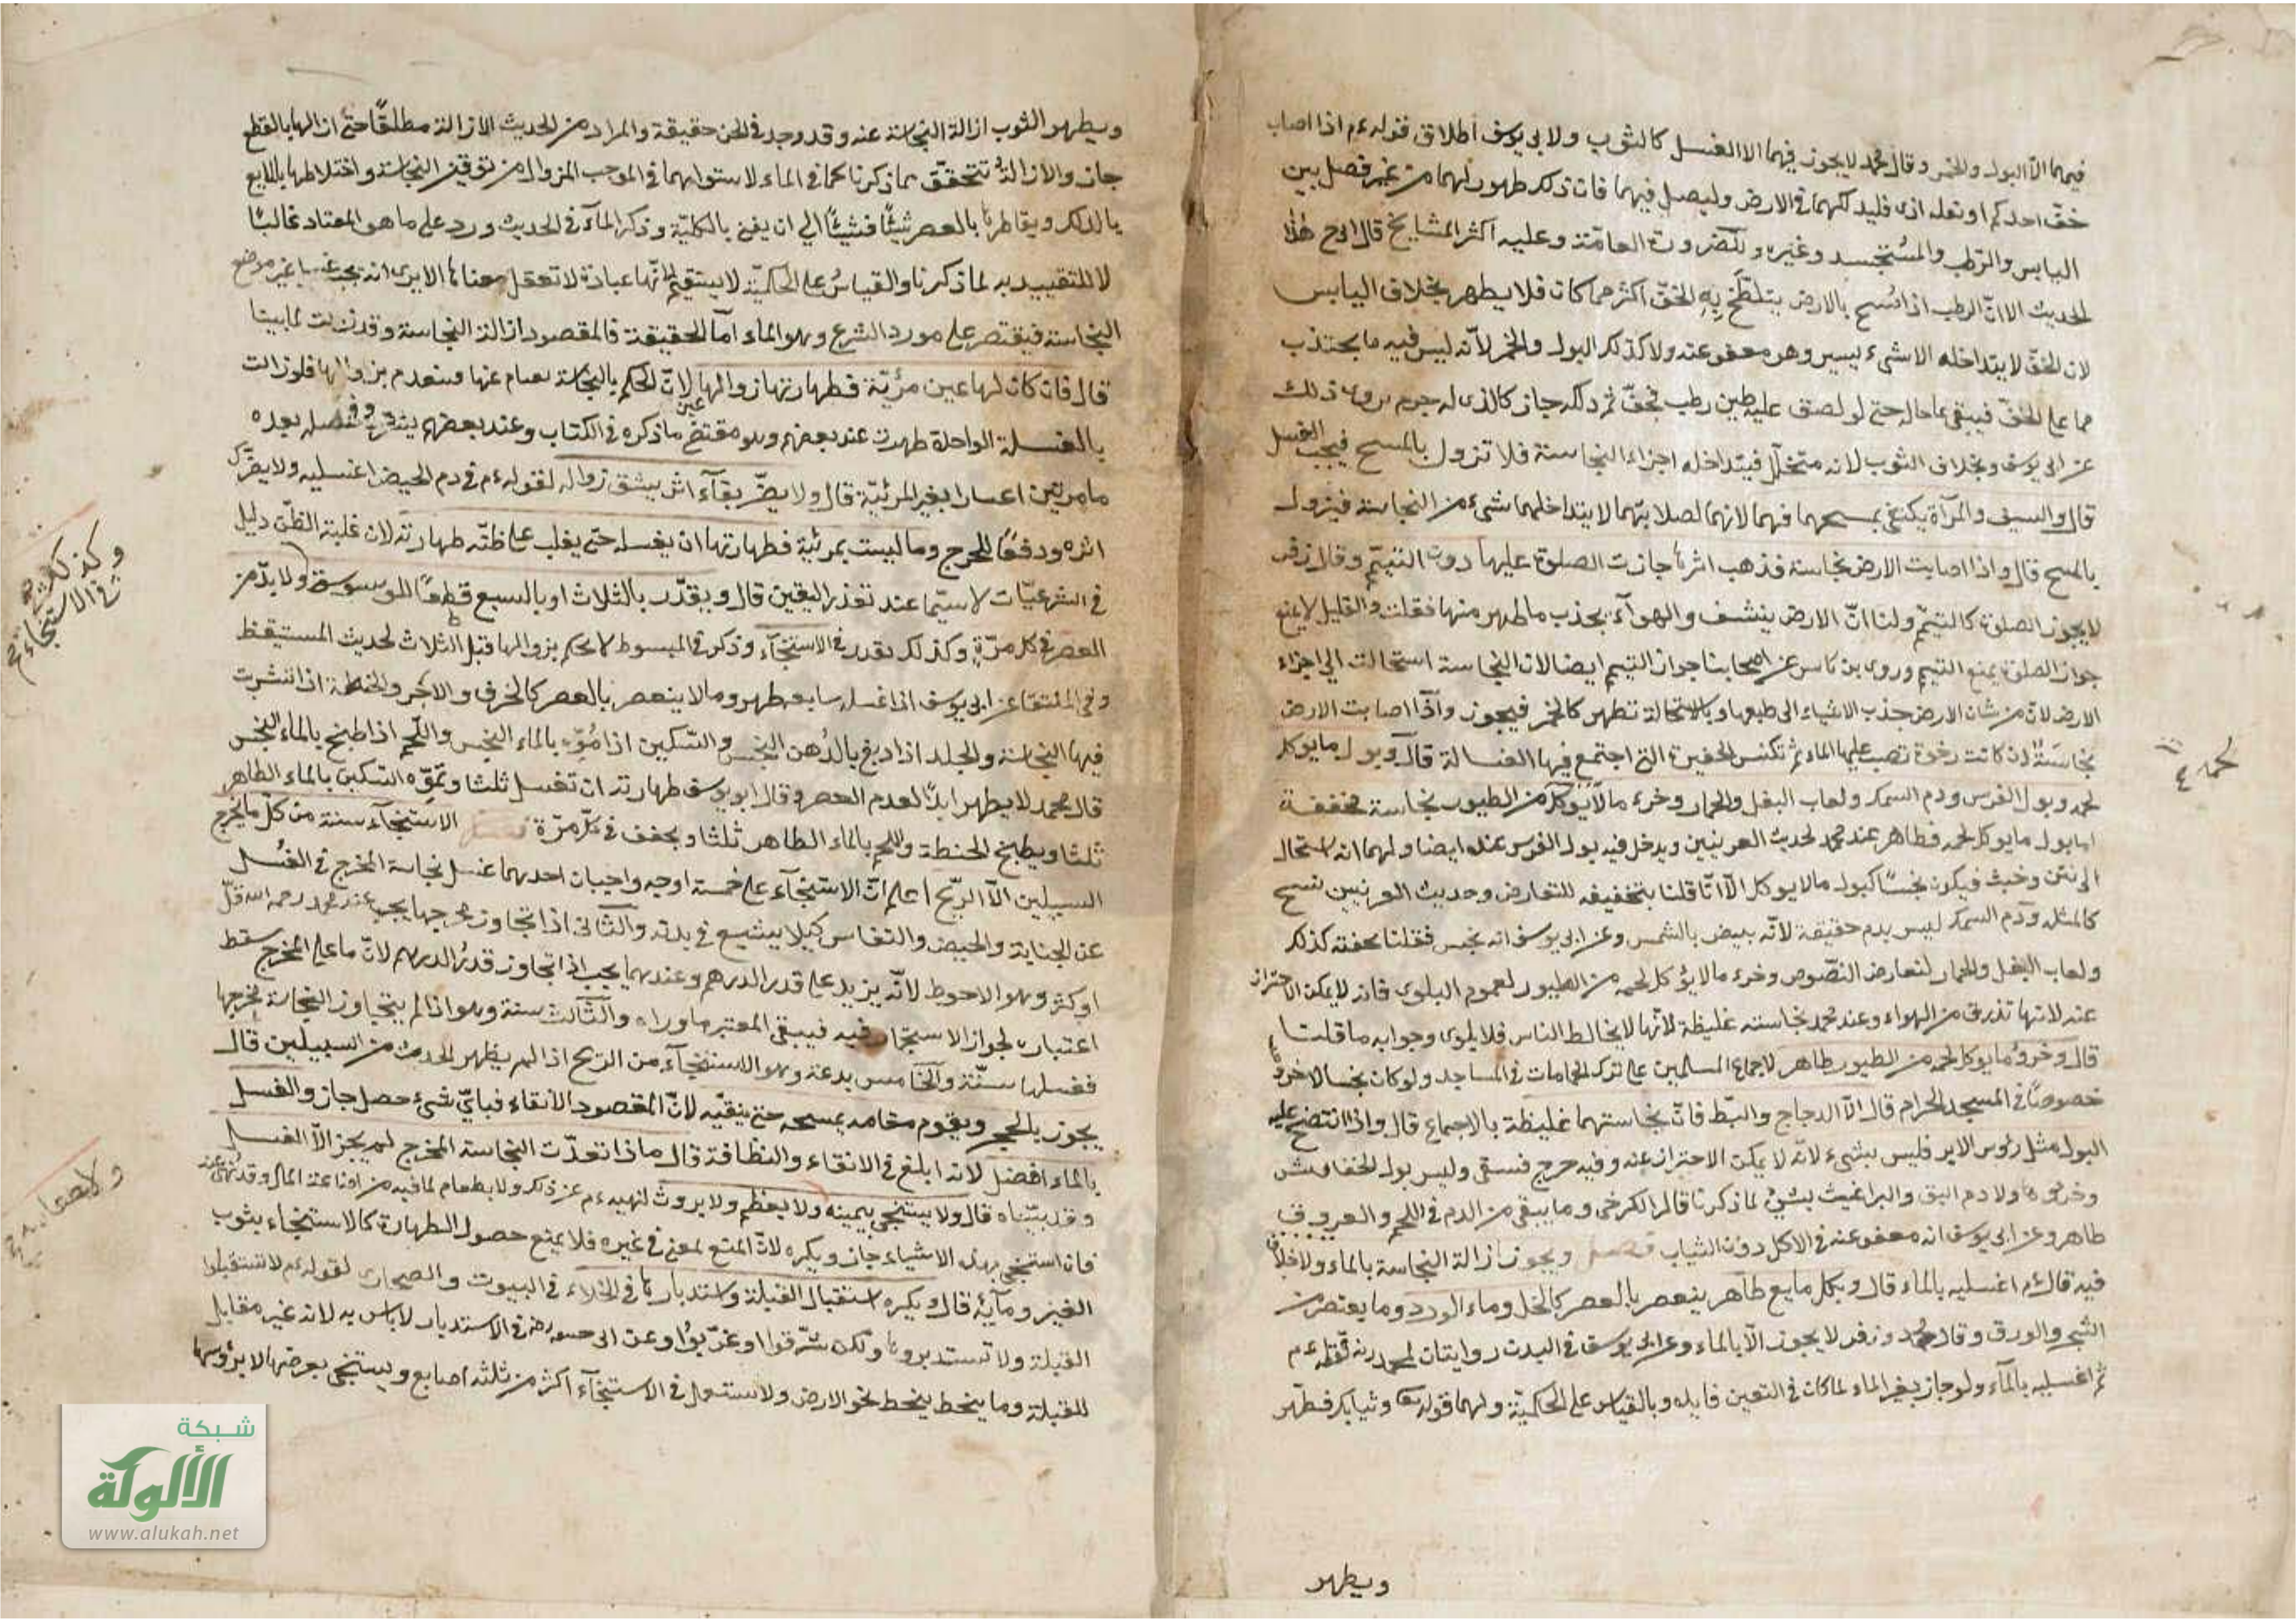 فيهما الا البول والخمر وقال محمد لا يجوز فيهما الا الغسل كالثوب ولابى يوسف اطلاق قوله عم اذا اصاب
خف احدكم او نعله اذى فليدلكهما فى الارض وليصل فيهما فان ذلك طهور لهما من غير فصل بين
اليابس والرطب والمستجسد وغيره وللضرورت العامة وعليه اكثر المشايخ قال ابوح هذا
الحديث الا ان الرطب اذا مسح بالارض يتلطخ به الخف اكثر مما كان فلا يطهر بخلاف اليابس
لان الخف لا يتداخله الا شىء يسير وهو معفو عنه ولا كذلك البول والخمر لانه ليس فيه ما يجتذب
مما على الخف فيبقى على حاله حتى لو لصق عليه طين رطب فجف ثم دلكه جاز كالذى له جرم يروى ذلك
عن ابى يوسف وبخلاف الثوب لانه متخلل فيتداخله اجزاء النجاسة فلا تزول بالمسح فيجب الغسل
قال والسيف والمرآة يكتفى بمسحهما فيهما لانهما لصلابتهما لا يتداخلهما شىء من النجاسة فيزول
بالمسح قال واذا اصابت الارض نجاسة فذهب اثرها جازت الصلوة عليها دون التيمم وقال زفر
لا يجوز الصلوة كالتيمم ولنا ان الارض ينشف والهوآء يجذب ما ظهر منها فقلت والقليل لا يمنع
جواز الصلوة يمنع التيمم وروى بن كاس عن اصحابنا جواز التيمم ايضا لان النجاسة استحالت الى اجزاء
الارض لان من شان الارض جذب الاشياء الى طبعها وبالاستحالة تطهر كالخمر فيجوز واذا اصابت الارض
نجاسة ان كانت رخوة تصب عليها الماء ثم تكنس الحفيرة التى اجتمع فيها الغسالة قال وبول ما يوكل
لحمه وبول الفرس ودم السمك ولعاب البغل والحمار وخرء ما لا يوكل من الطيور نجاسة مخففة
اما بول ما يوكل لحمه فطاهر عند محمد لحديث العرنيين ويدخل فيه بول الفرس عنده ايضا ولهما انه استحال
الى نتن وخبث فيكون نجسا كبول ما لا يوكل الا انا قلنا بتخفيفه للتعارض وحديث العرنيين نسخ
كالمثلة ودم السمك ليس بدم حقيقة لانه يبيض بالشمس وعن ابى يوسف انه نجس فقلنا بخفته كذلك
ولعاب البغل والحمار لتعارض النصوص وخرء ما لا يؤكل لحمه من الطيور لعموم البلوى فانه لا يمكن الاحتراز
عنه لانها تذرق من الهواء وعند محمد نجاسته غليظة لانها لا يخالط الناس فلا بلوى وجوابه ما قلنا
قال وخرؤ ما يوكل لحمه من الطيور طاهر لاجماع المسلمين على ترك الحمامات فى المساجد ولو كان نجسا لاخرجوه
خصوصا فى المسجد الحرام قال الا الدجاج والبط فان نجاستهما غليظة بالاجماع قال واذا انتضح عليه
البول مثل رؤس الابر فليس بشىء لانه لا يمكن الاحتراز عنه وفيه حرج فسقى وليس بول الخفافيش
وخرؤها ولا دم البق والبراغيث بشئ لما ذكرنا قال الكرخى وما يبقى من الدم فى اللحم والعروق
طاهر وعن ابى يوسف انه معفو عنه فى الاكل دون الثياب فصل ويجوز ازالة النجاسة بالماء ولا خلاف
فيه قال عم اغسليه بالماء قال وبكل مايع طاهر ينعصر بالعصر كالخل وماء الورد وما يعتصر من
الشجر والورق وقال محمد وزفر لا يجوز الا بالماء وعن ابى يوسف فى البدن روايتان لمحمد رنه قوله عم
ثم اغسليه بالمآء ولو جاز بغير الماء لما كان فى التعيين فايده وبالقياس على الحكمية ولهما قوله تعا وثيابك فطهر
ويطهر
لحمه
ويطهر الثوب ازالة النجاسة عنه وقد وجد فى الخل حقيقة والمراد من الحديث الازالة مطلقا حتى ازالها بالقطع
جاز والازالة تتحقق بما ذكرنا كما فى الماء لاستوايهما فى الموجب المزوال من ترقيق النجاسة واختلاطها بالمايع
بالدلك ويقاطرها بالعصر شيئا فشيئا الى ان يفنى بالكلية وذكر المآء فى الحديث ورد على ما هو المعتاد غالبا
لا للتقييد به لما ذكرنا والقياس على الحكمية لا يستقيم لانها عبادة لا تعقل معناها الا يرى انه يجب غسل غير موضع
النجاسة فيقتصر على مورد الشرع وهو الماء اما الحقيقة فالمقصود ازالة النجاسة وقد زالت لما بينا
قال فان كان لها عين مرئية فطهارتها زوالها لان الحكم بالنجاسة بقيام عينها وينعدم بزوالها فلو زالت
بالغسلة الواحدة طهرت عند بعضهم وهو مقتضى ما ذكره فى الكتاب وعند بعضهم يشترط غسله بعده
ما مرتين اعتبارا بغير المرئية قال ولا يضر بقآء اثر يشق زواله لقوله عم فى دم الحيض اغسليه ولا يضرك
اثره ودفعا للحرج وما ليست بمرئية فطهارتها ان يغسله حتى يغلب على ظنه طهارته لان غلبة الظن دليل
فى الشرعيات لا سيما عند تعذر اليقين قال ويقدر بالثلاث او بالسبع قطعا للوسوسة ولا بد من
العصر فى كل مرة وكذلك يقدر فى الاستنجآء وذكر فى المبسوط لا يحكم بزوالها قبل الثلاث لحديث المستيقظ
وفى المنتقا عن ابى يوسف اذا غسله سابعه طهر وما لا ينعصر بالعصر كالخزف والاجر والحنطة اذا انتشرت
فيها النجاسة والجلد اذا دبغ بالدهن النجس والسكين اذا موه بالماء النجس واللحم اذا طبخ بالماء النجس
قال محمد لا يطهر ابدا لعدم العصر وقال ابو يوسف طهارته ان تغسل ثلثا وتموه السكين بالماء الطاهر
ثلثا ويطبخ الحنطة واللحم بالماء الطاهر ثلثا ويجفف فى كل مرة فصل الاستنجآء سنة من كل ما يخرج
السبيلين الا الريح اعلم ان الاستنجآء على خمسة اوجه واجبان احدهما غسل نجاسة المخرج فى الغسل
عن الجناية والحيض والنفاس كيلا يشيع فى بدنه والثانى اذا تجاوز مخرجها يجب عند محمد رحمه الله قل
او كثر وهو الاحوط لانه يزيد على قدر الدرهم وعندهما يجب اذا تجاوز قدر الدرهم لان ما على المخرج سقط
اعتباره لجواز الاستجمار فيه فيبقى المعتبر ما وراه والثالث سنة وهو اذا لم يتجاوز النجاسة مخرجها
فغسلها سنة والخامس بدعة وهو الاستنجآء من الريح اذا لم يظهر الحدث من السبيلين قال
يجوز بالحجر ويقوم مقامه يمسحه حتى ينقيه لان المقصود الانقاء فباي شىء حصل جاز والغسل
بالماء افضل لانه ابلغ فى الانقاء والنظافة قال ماذا تعدت النجاسة المخرج لم يجز الا الغسل
وقد بيناه قال ولا يستنجى بيمينه ولا بعظم ولا بروث لنهيه عم عن ذلك ولا بطعام لما فيه من اضاعة المال وقد نهى عنه
فان استنجى بهذه الاشياء جاز ويكره لان المنع لمعنى فى غيره فلا يمنع حصول الطهارة كالاستنجاء بثوب
الغير ومآئه قال ويكره استقبال القبلة واستدبارها فى الخلاء فى البيوت والصحارى لقوله عم لا تستقبلوا
القبلة ولا تستدبروها ولكن شرقوا او غربوا وعن ابى حنيفة رضه فى الاستدبار لا باس به لانه غير مقابل
للقبلة وما ينحط ينحط نحو الارض ولا يستعمل فى الاستنجآء اكثر من ثلثه اصابع ويستنجى بعرضها لا برؤسها
وكذلك
فى الاستنجاء
شبكة
الألوكة
www.alukah.net